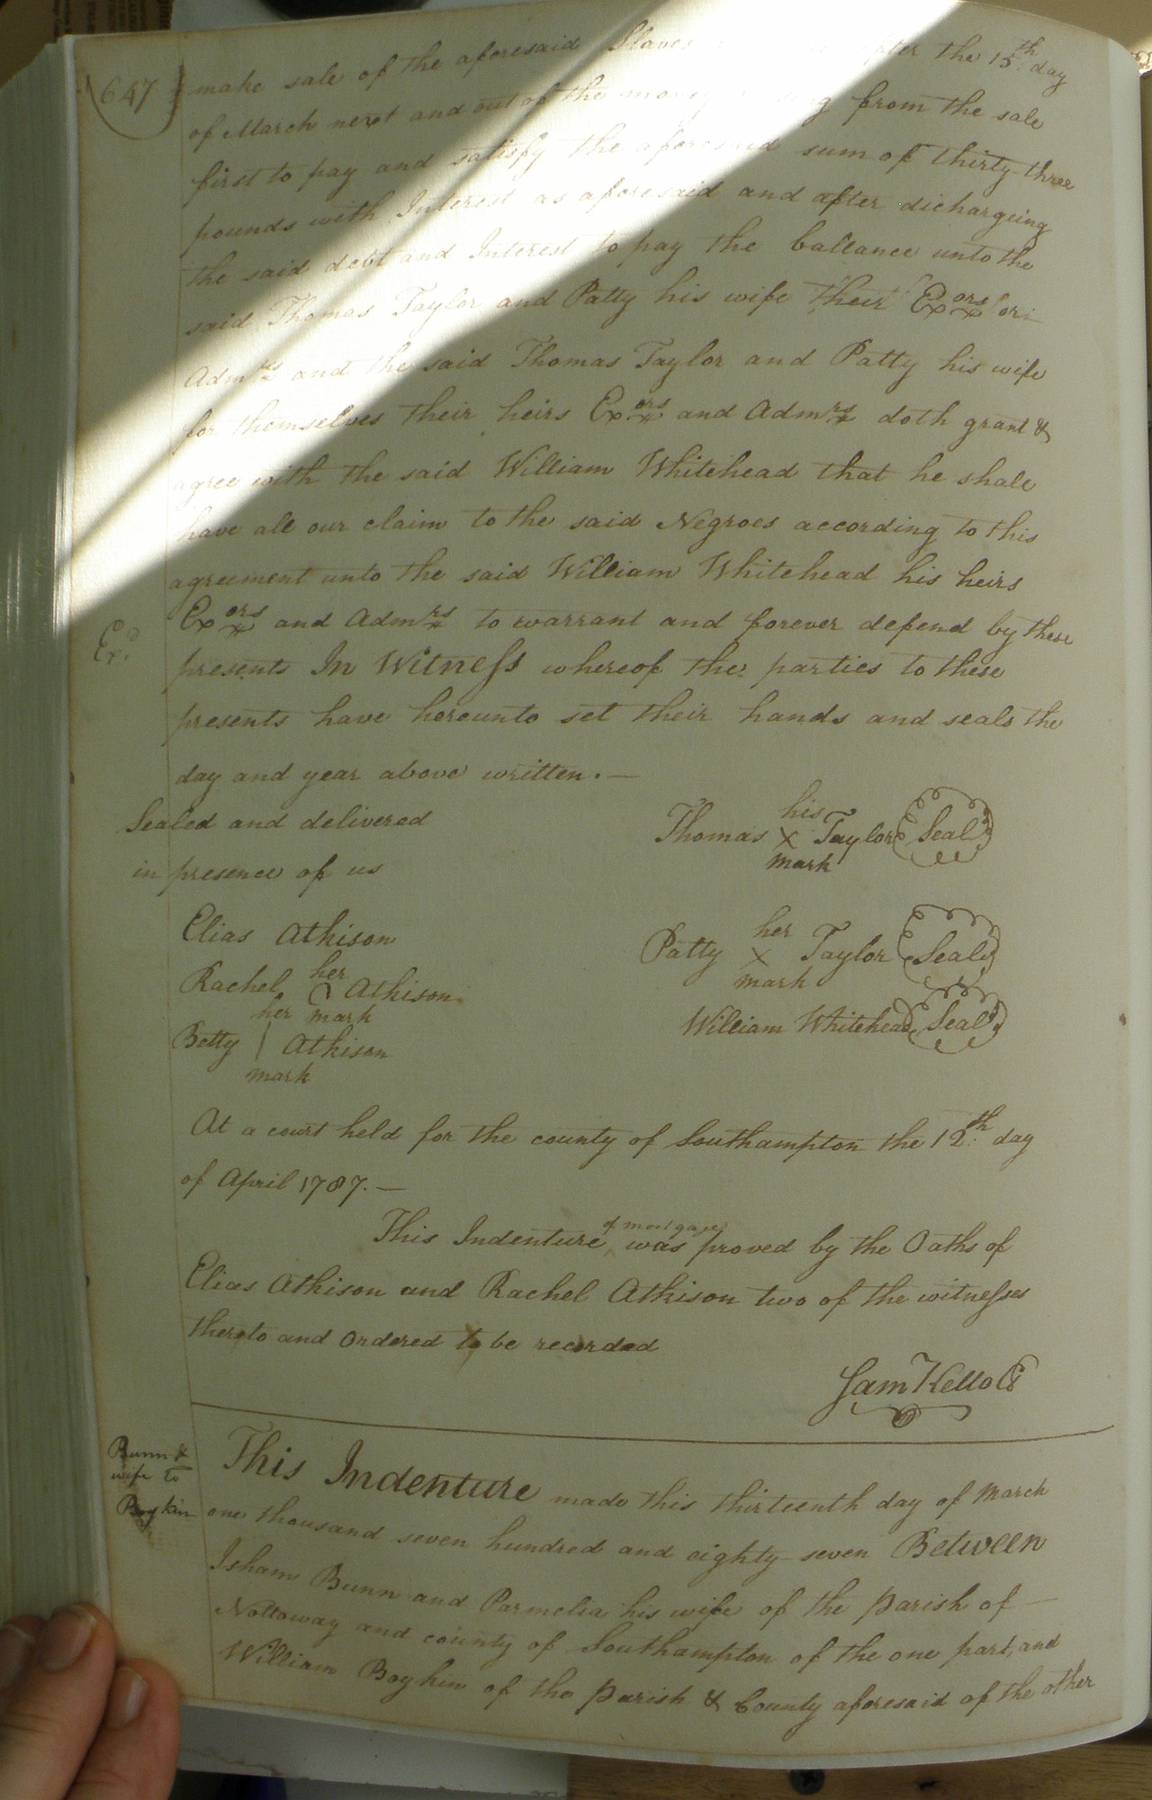 647
make sale of the aforesaid Slaves after the 15th day
of March next and out of the money from the sale
first to pay and satisfy the aforesaid sum of thirty-three
pounds with Interest as aforesaid and after dichargeing
the said debt and Interest to pay the ballance unto the
said Thomas Taylor and Patty his wife their Exors or
Admrs and the said Thomas Taylor and Patty his wife
for themselves their heirs Exors and Admrs doth grant &
agree with the said William Whitehead that he shall
have all our claim to the said Negroes according to this
agreement unto the said William Whitehead his heirs
Exors and Admrs to warrant and forever defend by these
Ex.d
presents In Witness whereof the parties to these
presents have hereunto set their hands and seals the
day and year above written.—
Sealed and delivered
in presence of us
his
Thomas X Taylor Seal
mark
Elias Atkison
her
Patty X Taylor Seal
mark
her
Rachel Atkison
mark
William Whitehead Seal
her
Betty | Atkison
mark
At a court held for the county of Southampton the 12th day
of April 1787.—
This Indenture of mortgage was proved by the Oaths of
Elias Atkison and Rachel Atkison two of the witnesses
thereto and Ordered to be recorded
Saml Kello C
Bunn &
wife to
Boykin
This Indenture made this thirteenth day of March
one thousand seven hundred and eighty-seven Between
Isham Bunn and Parmelia his wife of the parish of —
Nottoway and county of Southampton of the one part, and
William Boykin of the parish & County aforesaid of the other